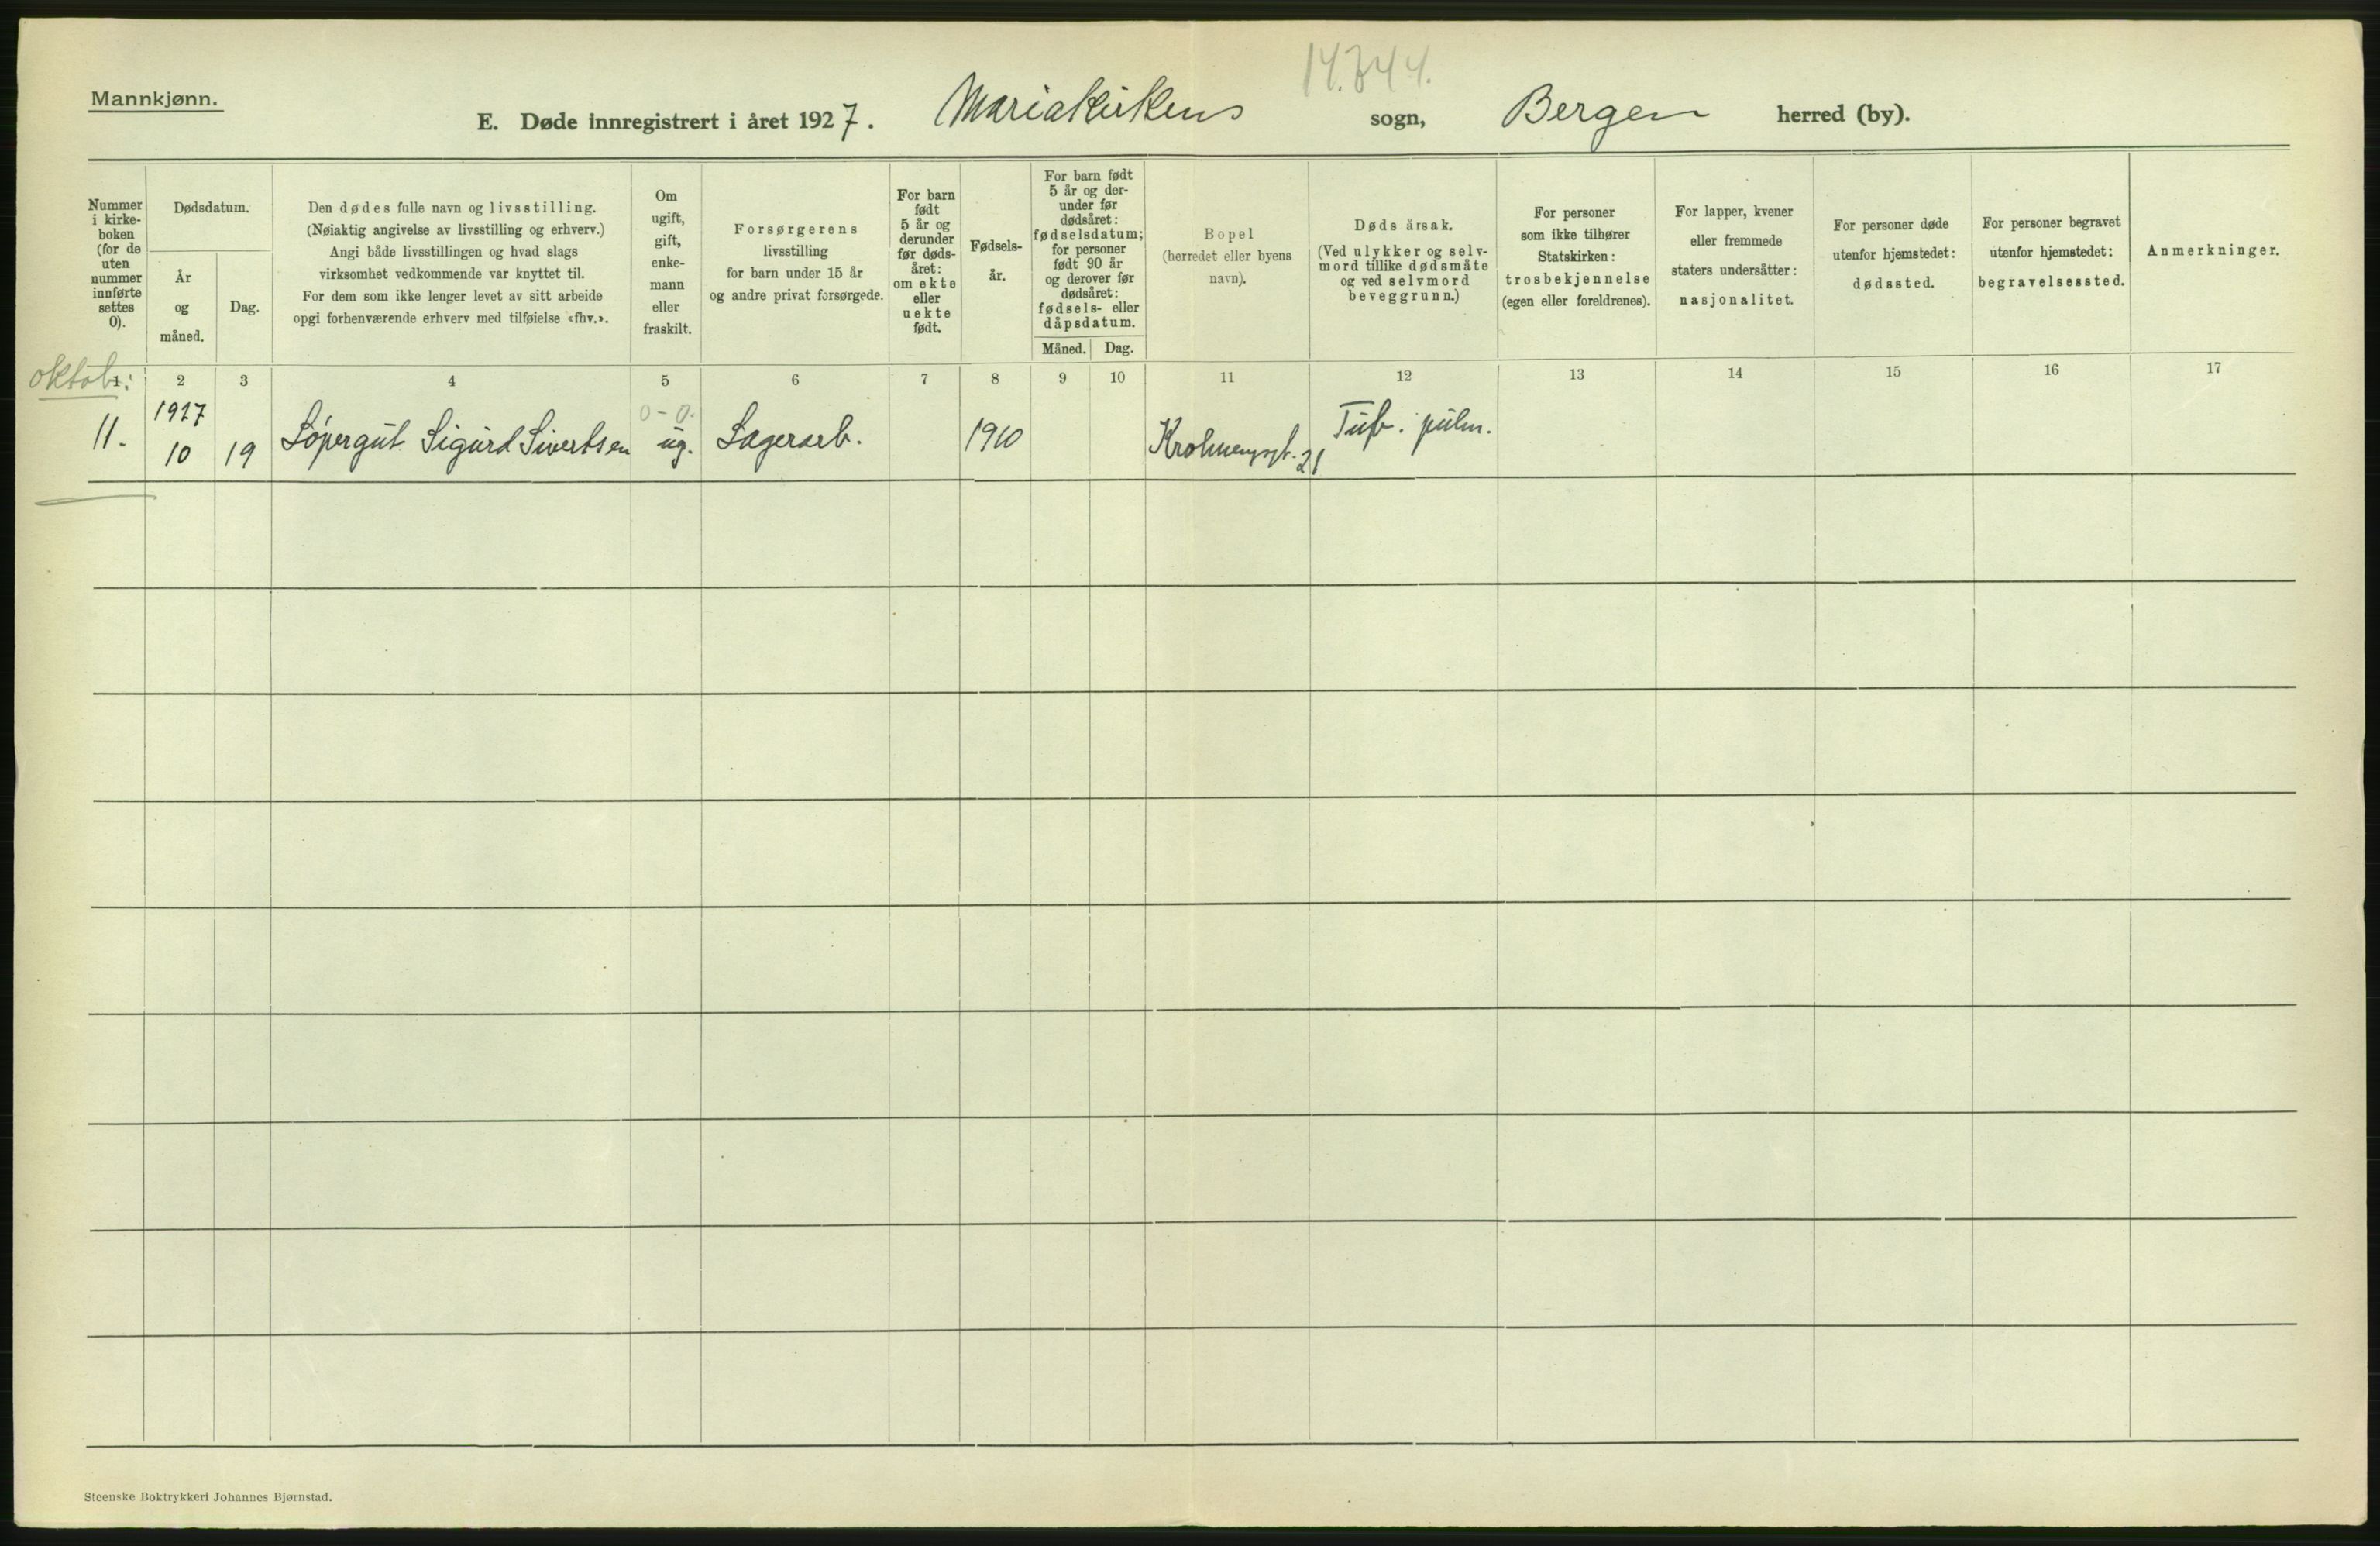 14.344.
Mannkjønn.
E. Døde innregistrert i året 1927. Mariakirkens sogn, Bergen herred (by).
Nummer
i kirke-
boken
(for de
uten
nummer
innførte
settes
0).
Dødsdatum.
År
og
måned.
Dag.
Den dødes fulle navn og livsstilling.
(Nøiaktig angivelse av livsstilling og erhverv.)
Angi både livsstillingen og hvad slags
virksomhet vedkommende var knyttet til.
For dem som ikke lenger levet av sitt arbeide
opgi forhenværende erhverv med tilføielse «fhv.».
Om
ugift,
gift,
enke-
mann
eller
fraskilt.
Forsørgerens
livsstilling
for barn under 15 år
og andre privat forsørgede.
For barn
født
5 år og
derunder
før døds-
året:
om ekte
eller
uekte
født.
Fødsels-
år.
For barn født
5 år og der-
under før
dødsåret:
fødselsdatum;
for personer
født 90 år
og derover før
dødsåret:
fødsels- eller
dåpsdatum.
Måned. Dag.
Bopel
(herredet eller byens
navn).
Dødsårsak.
(Ved ulykker og selv-
mord tillike dødsmåte
og ved selvmord
beveggrunn.)
For personer
som ikke tilhører
Statskirken:
trosbekjennelse
(egen eller foreldrenes).
For lapper, kvener
eller fremmede
staters undersåtter:
nasjonalitet.
For personer døde
utenfor hjemstedet:
dødssted.
For personer begravet
utenfor hjemstedet:
begravelsessted.
Anmerkninger.
oktob:
1 2 3 4 5 6 7 8 9 10 11 12 13 14 15 16 17
1927 0-0.
11. 10 19 Løpergut Sigurd Sivertsen ug. Lagerarb. 1910 Krohnengsgt. 21 Tub. pulm.
Steenske Boktrykkeri Johannes Bjørnstad.